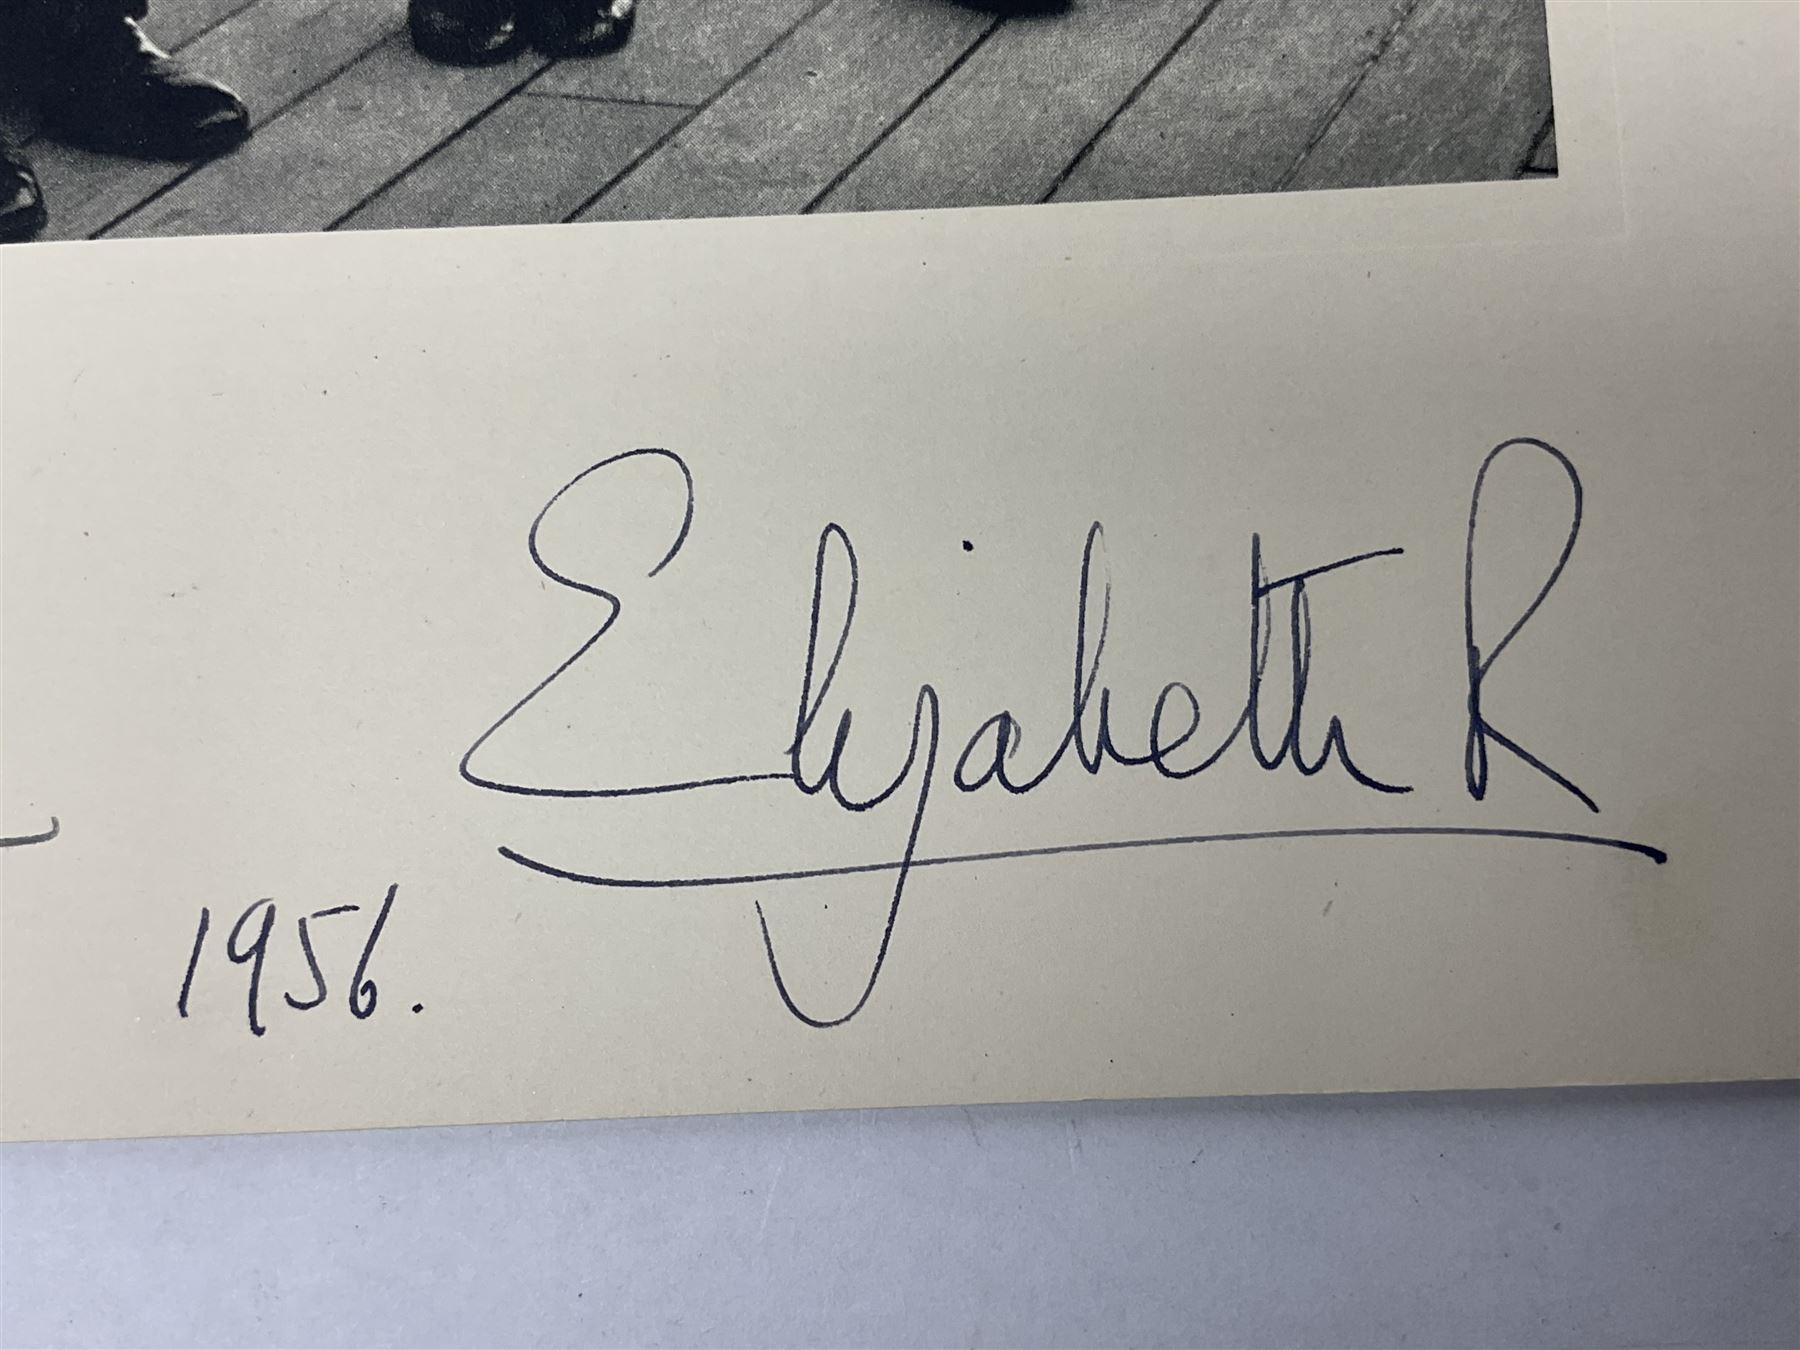 Elizabeth R
1956.